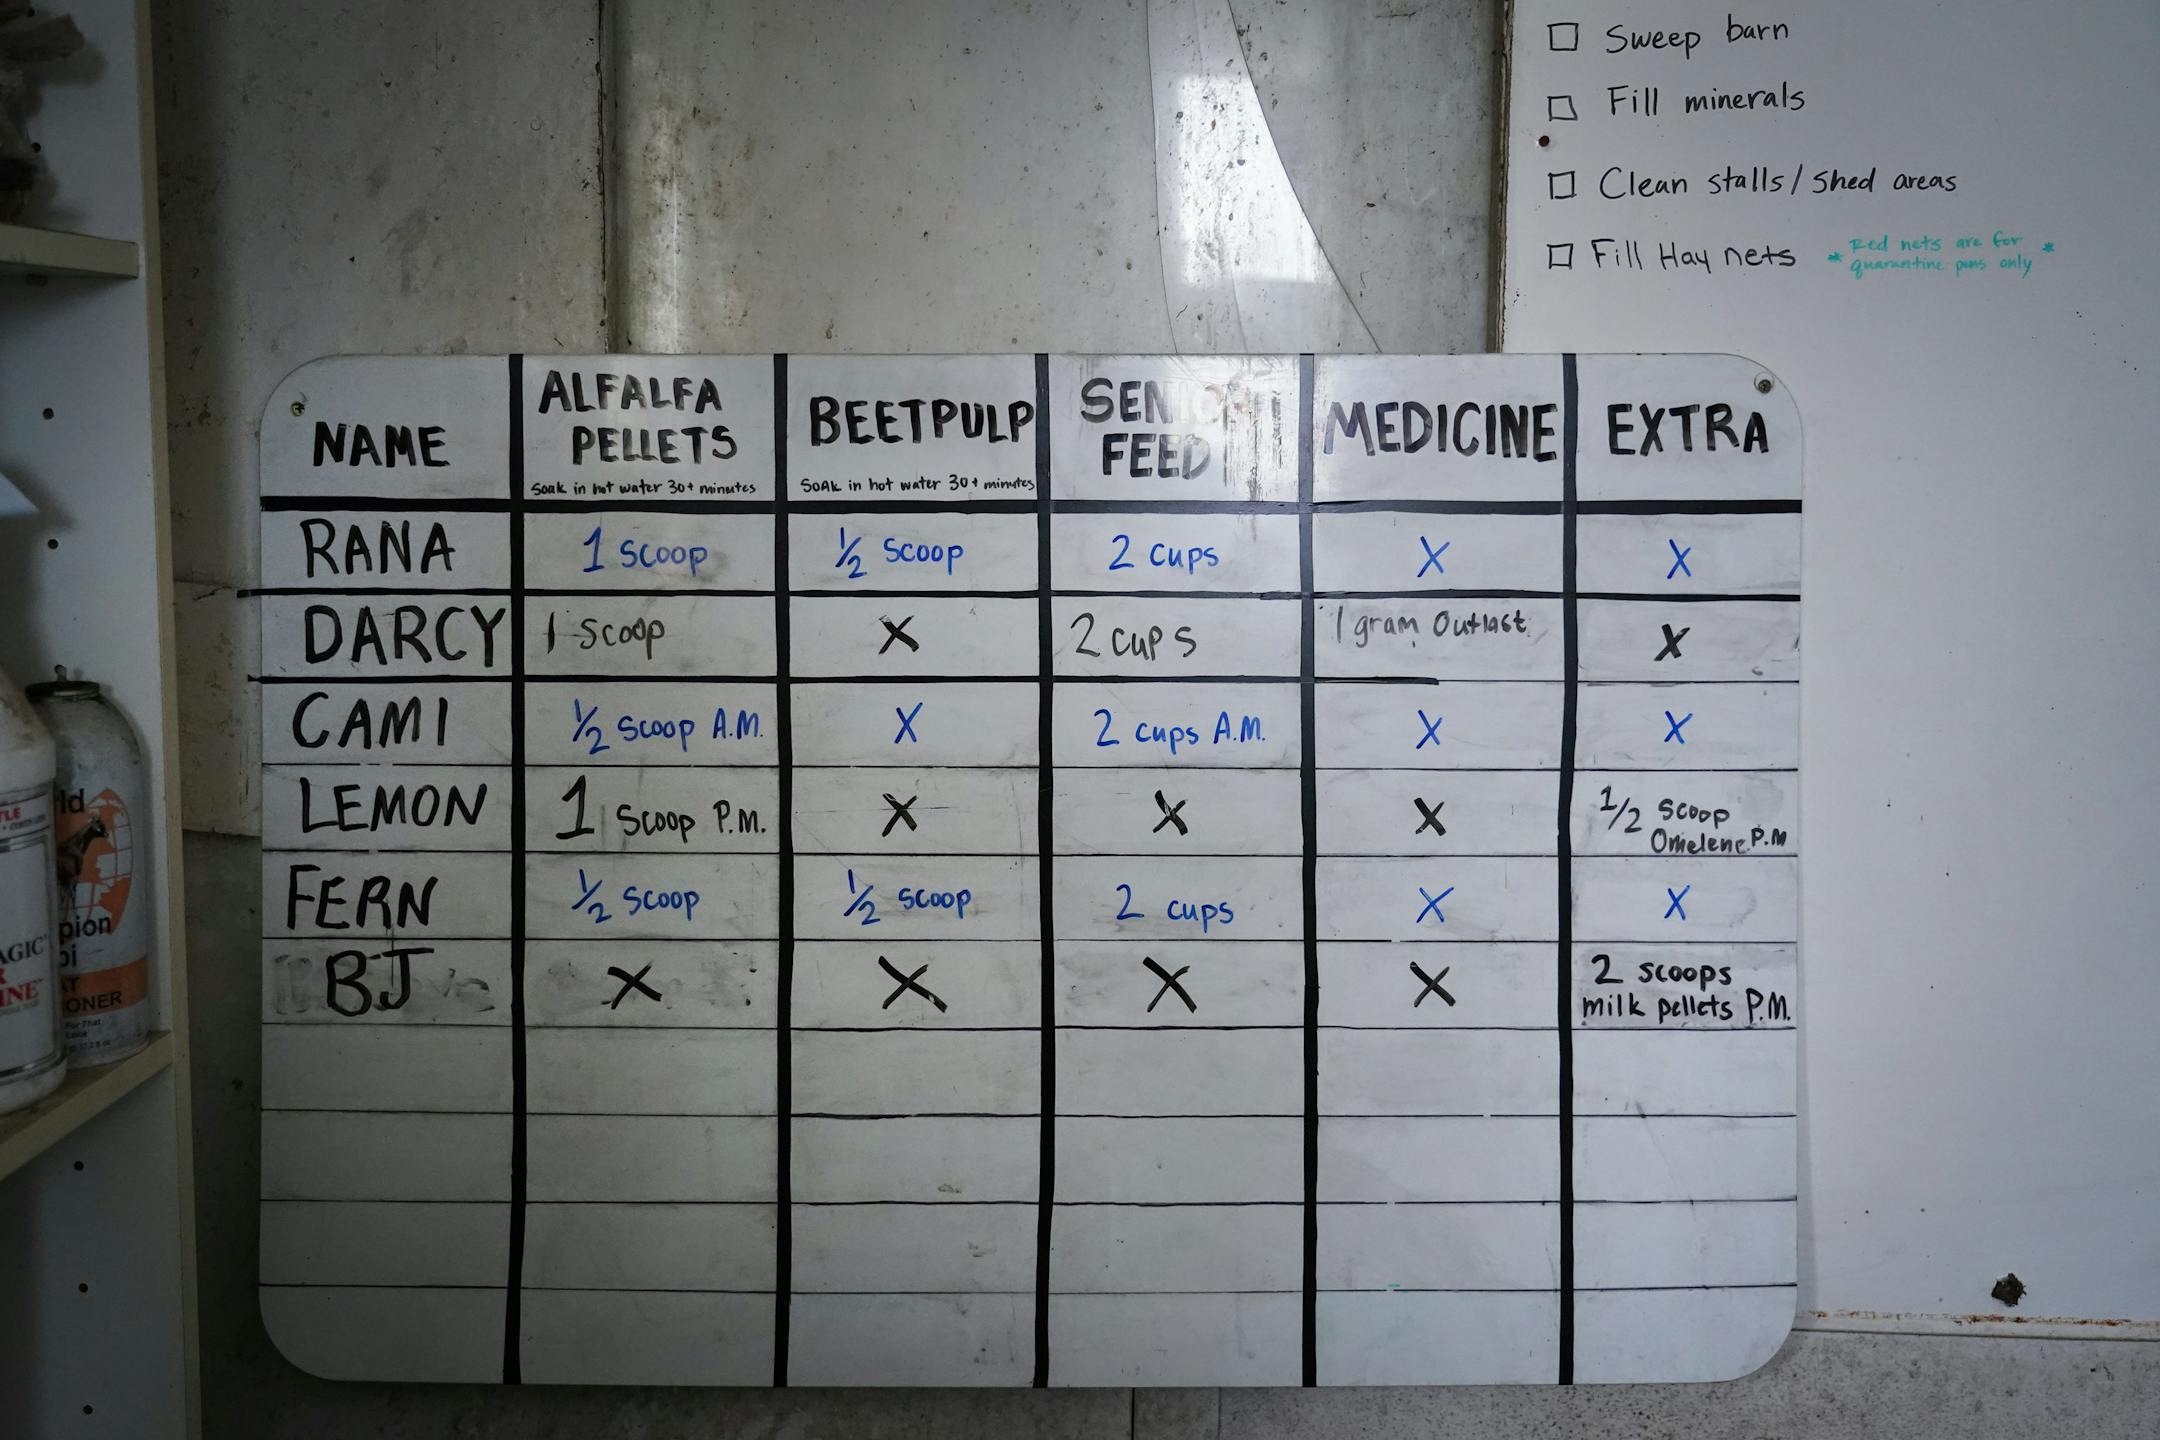 ☐ Sweep barn
☐ Fill minerals
☐ Clean stalls / shed areas
☐ Fill Hay nets
* Red nets are for *
quarantine pens only
NAME
ALFALFA
PELLETS
Soak in hot water 30+ minutes
BEETPULP
SOAK in hot water 30+ minutes
SENIOR
FEED
MEDICINE
EXTRA
RANA
1 scoop
1/2 scoop
2 cups
X
X
DARCY
1 scoop
X
2 cups
1 gram Outlast
X
CAMI
1/2 scoop A.M.
X
2 cups A.M.
X
X
LEMON
1 scoop P.M.
X
X
X
1/2 scoop
Omelene P.M
FERN
1/2 scoop
1/2 scoop
2 cups
X
X
BJ
X
X
X
X
2 scoops
milk pellets P.M.
ld
pion
pi
AT
ONER
For That
Look
TLE
AGIC
R
INE